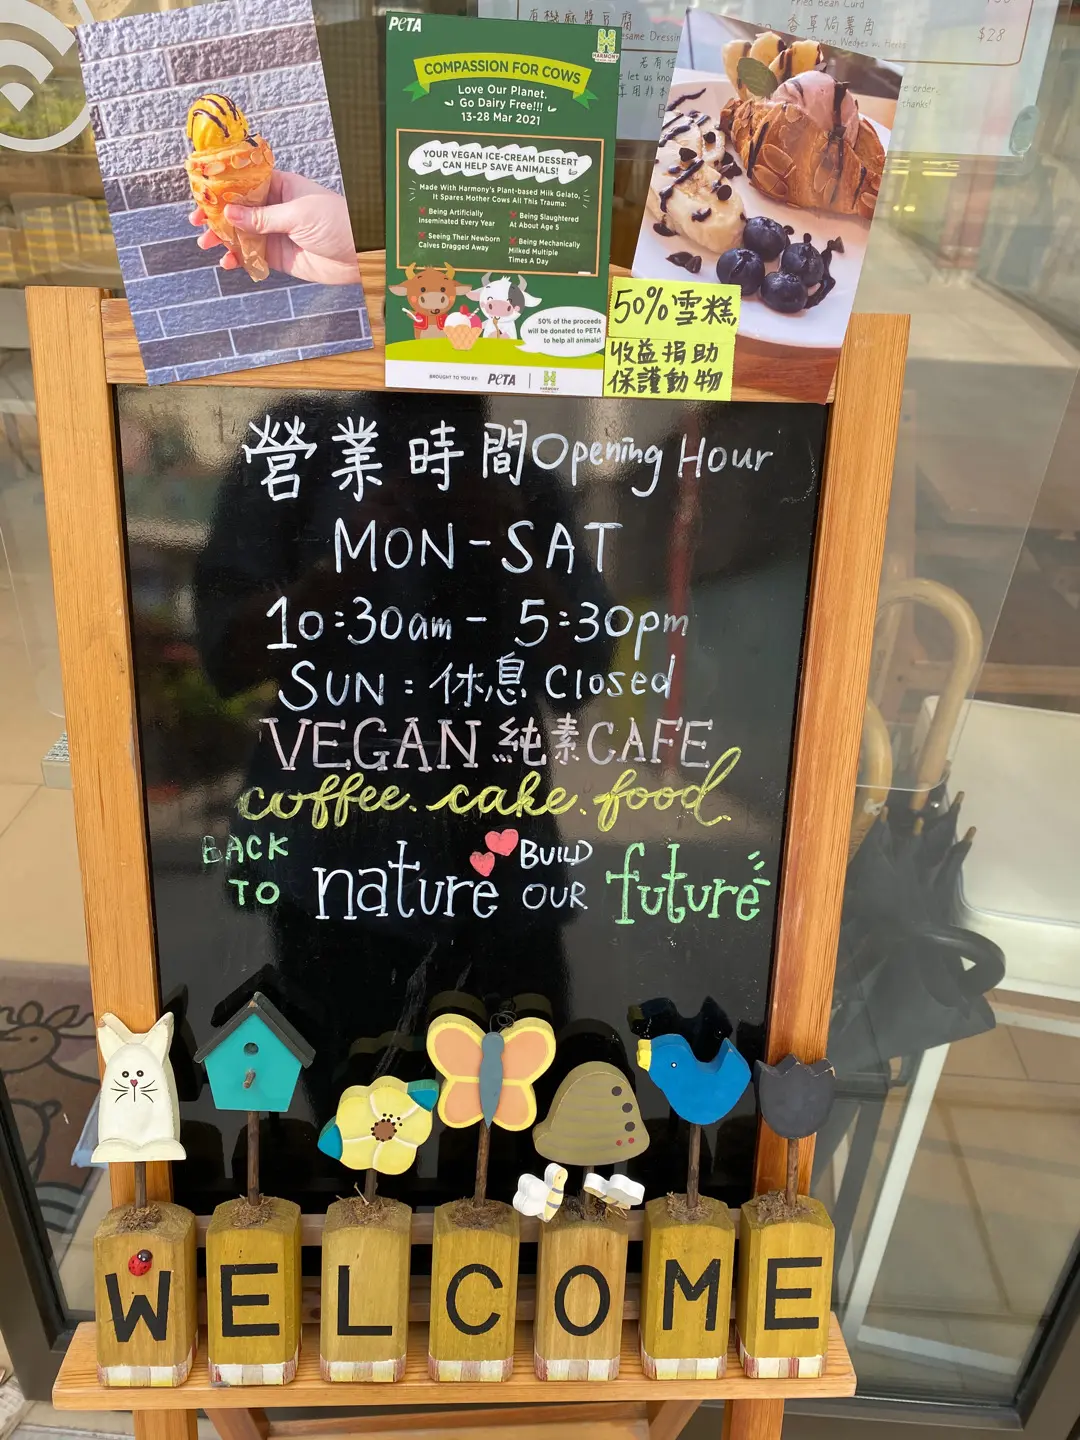 有機麻醬豆腐
esame Dressin
Fried Bean Curd
香草焗薯角
to Wedges w. Herbs
$28
let us know
e order.
thanks!
PETA
HARMONY
COMPASSION FOR COWS
Love Our Planet,
Go Dairy Free!!!
13-28 Mar 2021
YOUR VEGAN ICE-CREAM DESSERT
CAN HELP SAVE ANIMALS!
Made With Harmony's Plant-based Milk Gelato,
It Spares Mother Cows All This Trauma:
Being Artificially
Inseminated Every Year
Being Slaughtered
At About Age 5
Seeing Their Newborn
Calves Dragged Away
Being Mechanically
Milked Multiple
Times A Day
50% of the proceeds
will be donated to PETA
to help all animals!
BROUGHT TO YOU BY: PETA | HARMONY
50%雪糕
收益捐助
保護動物
營業時間Opening Hour
MON-SAT
10:30am - 5:30pm
SUN: 休息 Closed
VEGAN 純素CAFE
coffee. cake. food.
BACK TO nature BUILD OUR future
WELCOME